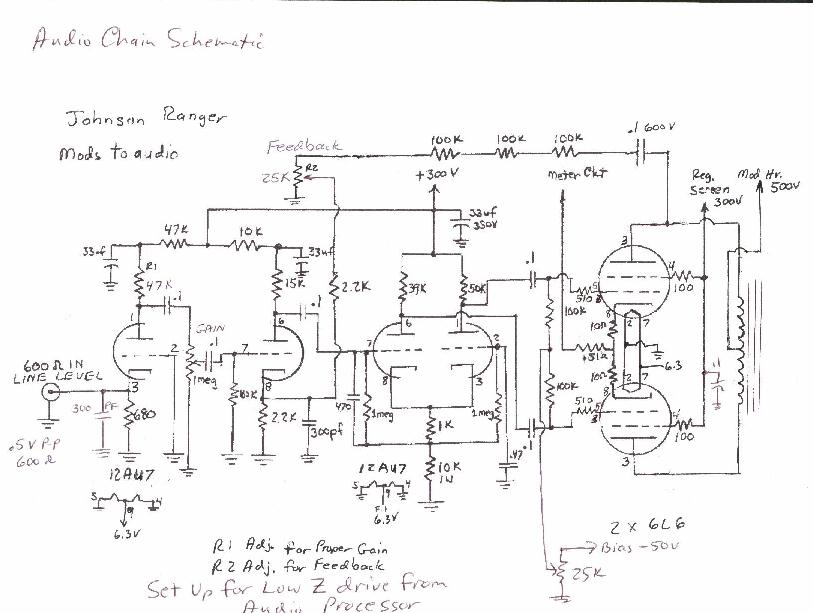 Audio Chain Schematic
Johnson Ranger
Mods to audio
Feedback
R2
25K
100K
100K
100K
.1 600V
+300V
Meter Ckt
Reg.
Screen
300V
Mod Hv.
500V
33uf
350V
47K
10K
33uf
33uf
R1
47K
.1
15K
.1
2.2K
39K
50K
.1
510
100K
100
3
4
5
8
2
7
1
6
6
1
GAIN
.1
1meg
2
7
7
2
10Ω
+51Ω
6.3
600Ω IN
LINE LEVEL
3
8
8
3
100K
10Ω
.1
300 PF
680
100K
2.2K
300pf
470
1meg
1meg
1K
510
5
8
2
7
4
100
3
.5V P.P
600Ω
.1
.47
10K
1W
12AU7
5
4
9
6.3V
12AU7
5
4
9
6.3V
2 x 6L6
R1 Adj. for Proper Gain
R2 Adj. for Feedback
Bias -50V
25K
Set Up for Low Z drive from
Audio Processor